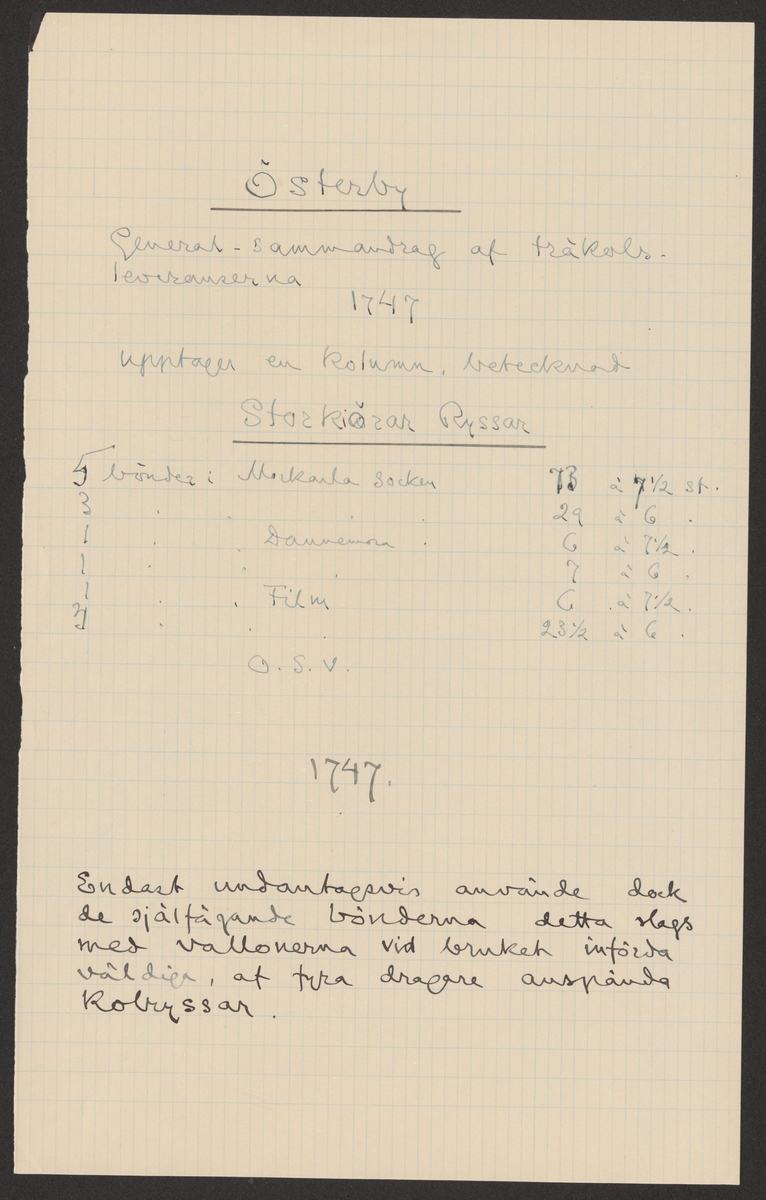 Österby
General-sammandrag af träkols-
leveranserna
1747
upptager en kolumn, betecknad
Storkiörar Ryssar
5 bönder i Morkarla socken 73 à 7 1/2 st.
3 . . . . 29 à 6 .
1 . . Dannemora . 6 à 7 1/2 .
1 . . . 7 à 6 .
1 . . Film 6 à 7 1/2 .
. . . 23 1/2 à 6 .
O.S.V.
1747.
Endast undantagsvis använde dock
de självägande bönderna detta slags
med vallonerna vid bruket införda
väldiga, af fyra dragare anspända
Kolryssar.